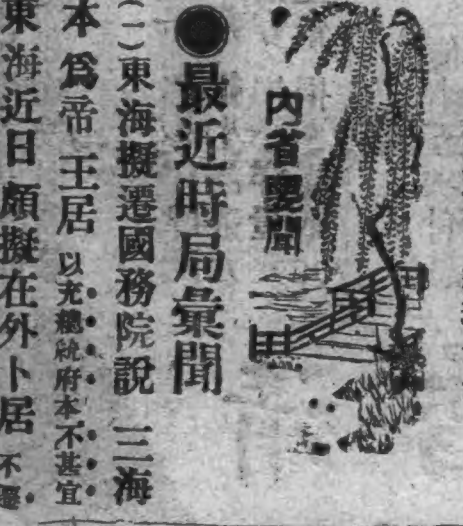 內省要聞
●最近時局彙聞
(一)東海擬遷國務院說 三海
本爲帝王居以充總統府本不甚宜
東海近日頗擬在外卜居不遷